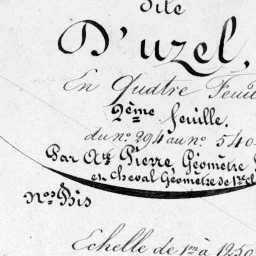 dite
D'uzel,
En Quatre Feuil
2ème feuille.
du nº 294 au nº 540
Par Mrs Pierre Géomètre
en cheval Géomètre de 1re cl
nos Bis
Echelle de 1m à 1250